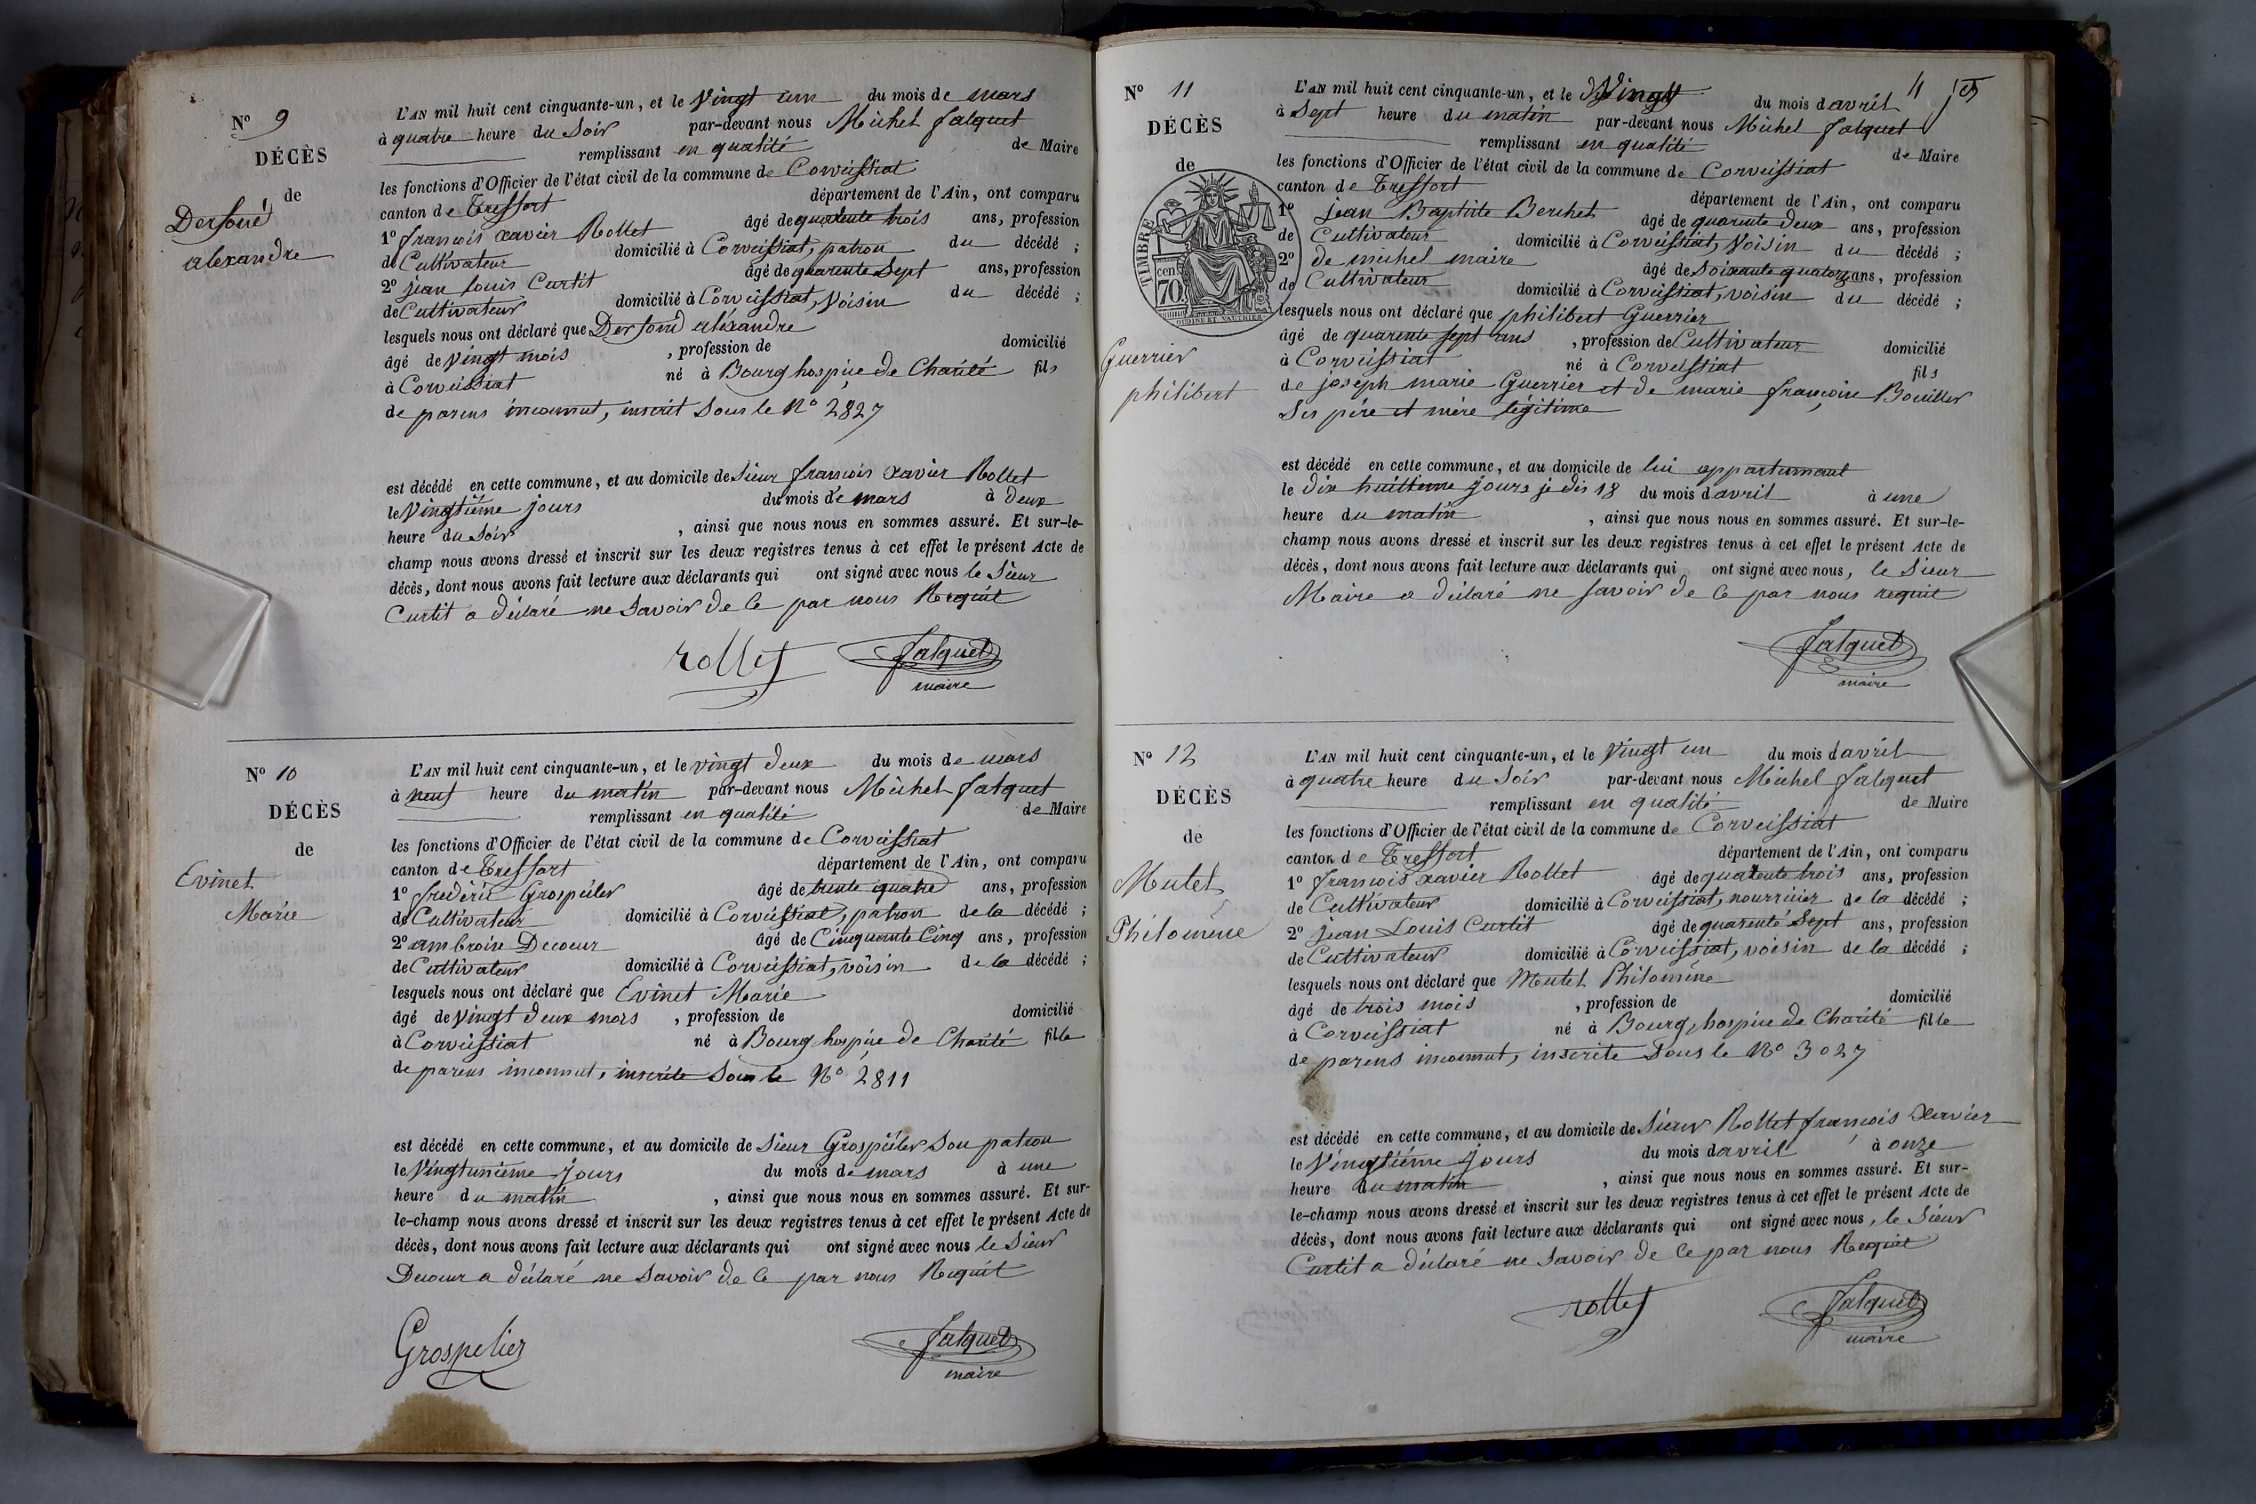 N° 9
DÉCÈS
de
Dersoud
alexandre
L'AN mil huit cent cinquante-un, et le Vingt un du mois de mars
à quatre heure du Soir par-devant nous Michel falquet
remplissant en qualité de Maire
les fonctions d'Officier de l'état civil de la commune de Corveissiat
canton de Treffort département de l'Ain, ont comparu
1° françois xavier Rollet âgé de quarente trois ans, profession
de Cultivateur domicilié à Corveissiat, patron du décédé ;
2° jean louis Curtit âgé de quarente Sept ans, profession
de Cultivateur domicilié à Corveissiat, Voisin du décédé ;
lesquels nous ont déclaré que Dersoud aléxandre
âgé de Vingt mois , profession de domicilié
à Corveissiat né à Bourg hospice de Charité fils
de parens inconnut, inscrit Sous le N° 2827
est décédé en cette commune, et au domicile de Sieur françois xavier Rollet
le Vingtième jours du mois de mars à deux
heure du Soir , ainsi que nous nous en sommes assuré. Et sur-le-
champ nous avons dressé et inscrit sur les deux registres tenus à cet effet le présent Acte de
décès, dont nous avons fait lecture aux déclarants qui ont signé avec nous le Sieur
Curtit a déclaré ne Savoir de Ce par nous Requit
rollet falquet
maire
N° 10
DÉCÈS
de
Evinet
Marie
L'AN mil huit cent cinquante-un, et le vingt deux du mois de mars
à neuf heure du matin par-devant nous Michel falquet
remplissant en qualité de Maire
les fonctions d'Officier de l'état civil de la commune de Corveissiat
canton de Treffort département de l'Ain, ont comparu
1° frédéric Grospélier âgé de trente quatre ans, profession
de Cultivateur domicilié à Corveissiat, patron de la décédé ;
2° ambroise Decoeur âgé de Cinquante Cinq ans, profession
de Cultivateur domicilié à Corveissiat, voisin de la décédé ;
lesquels nous ont déclaré que Evinet Marie
âgé de Vingt deux mois , profession de domicilié
à Corveissiat né à Bourg hospice de Charité fille
de parens inconnut, inscrite Sous le N° 2811
est décédé en cette commune, et au domicile de Sieur Grospélier Son patron
le Vingtunième jours du mois de mars à une
heure du matin , ainsi que nous nous en sommes assuré. Et sur-
le-champ nous avons dressé et inscrit sur les deux registres tenus à cet effet le présent Acte de
décès, dont nous avons fait lecture aux déclarants qui ont signé avec nous le Sieur
Decoeur a déclaré ne Savoir de Ce par nous Requit
Grospelier falquet
maire
11
N° 11
DÉCÈS
de
TIMBRE
cen
70
Guerrier
philibert
L'AN mil huit cent cinquante-un, et le Vingt du mois d'avril
à Sept heure du matin par-devant nous Michel falquet
remplissant en qualité de Maire
les fonctions d'Officier de l'état civil de la commune de Corveissiat
canton de Treffort département de l'Ain, ont comparu
1° jean Baptiste Berchet âgé de quarente deux ans, profession
de Cultivateur domicilié à Corveissiat, Voisin du décédé ;
2° de michel maire âgé de Soixante quatorze ans, profession
de Cultivateur domicilié à Corveissiat, voisin du décédé ;
lesquels nous ont déclaré que philibert Guerrier
âgé de quarente sept ans , profession de Cultivateur domicilié
à Corveissiat né à Corveissiat fils
de joseph marie Guerrier et de marie françoise Bouiller
Ses pére et mère légitime
est décédé en cette commune, et au domicile de lui appartennant
le dix huitième jours je dis 18 du mois d'avril à une
heure du matin , ainsi que nous nous en sommes assuré. Et sur-le-
champ nous avons dressé et inscrit sur les deux registres tenus à cet effet le présent Acte de
décès, dont nous avons fait lecture aux déclarants qui ont signé avec nous, le Sieur
Maire a déclaré ne Savoir de Ce par nous requit
falquet
maire
N° 12
DÉCÈS
de
Mutet
Philomène
L'AN mil huit cent cinquante-un, et le Vingt un du mois d'avril
à quatre heure du Soir par-devant nous Michel falquet
remplissant en qualité de Maire
les fonctions d'Officier de l'état civil de la commune de Corveissiat
canton de Treffort département de l'Ain, ont comparu
1° françois xavier Rollet âgé de quarente trois ans, profession
de Cultivateur domicilié à Corveissiat, nourricier de la décédé ;
2° jean Louis Curtit âgé de quarente Sept ans, profession
de Cultivateur domicilié à Corveissiat, voisin de la décédé ;
lesquels nous ont déclaré que Mutet Philomène
âgé de trois mois , profession de domicilié
à Corveissiat né à Bourg, hospice de Charité fille
de parens inconnut, inscrite Sous le N° 3027
est décédé en cette commune, et au domicile de Sieur Rollet françois Xavier
le Vingtiéme jours du mois d'avril à onze
heure du matin , ainsi que nous nous en sommes assuré. Et sur-
le-champ nous avons dressé et inscrit sur les deux registres tenus à cet effet le présent Acte de
décès, dont nous avons fait lecture aux déclarants qui ont signé avec nous, le Sieur
Curtit a déclaré ne Savoir de Ce par nous Requit
rollet falquet
maire